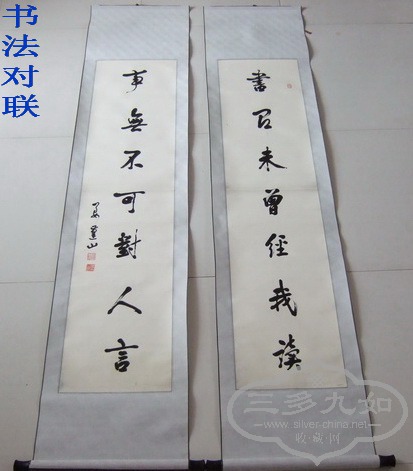 书法对联
書有未曾經我讀
事無不可對人言
山
三多九如
www.silver-china.net
收·藏·网